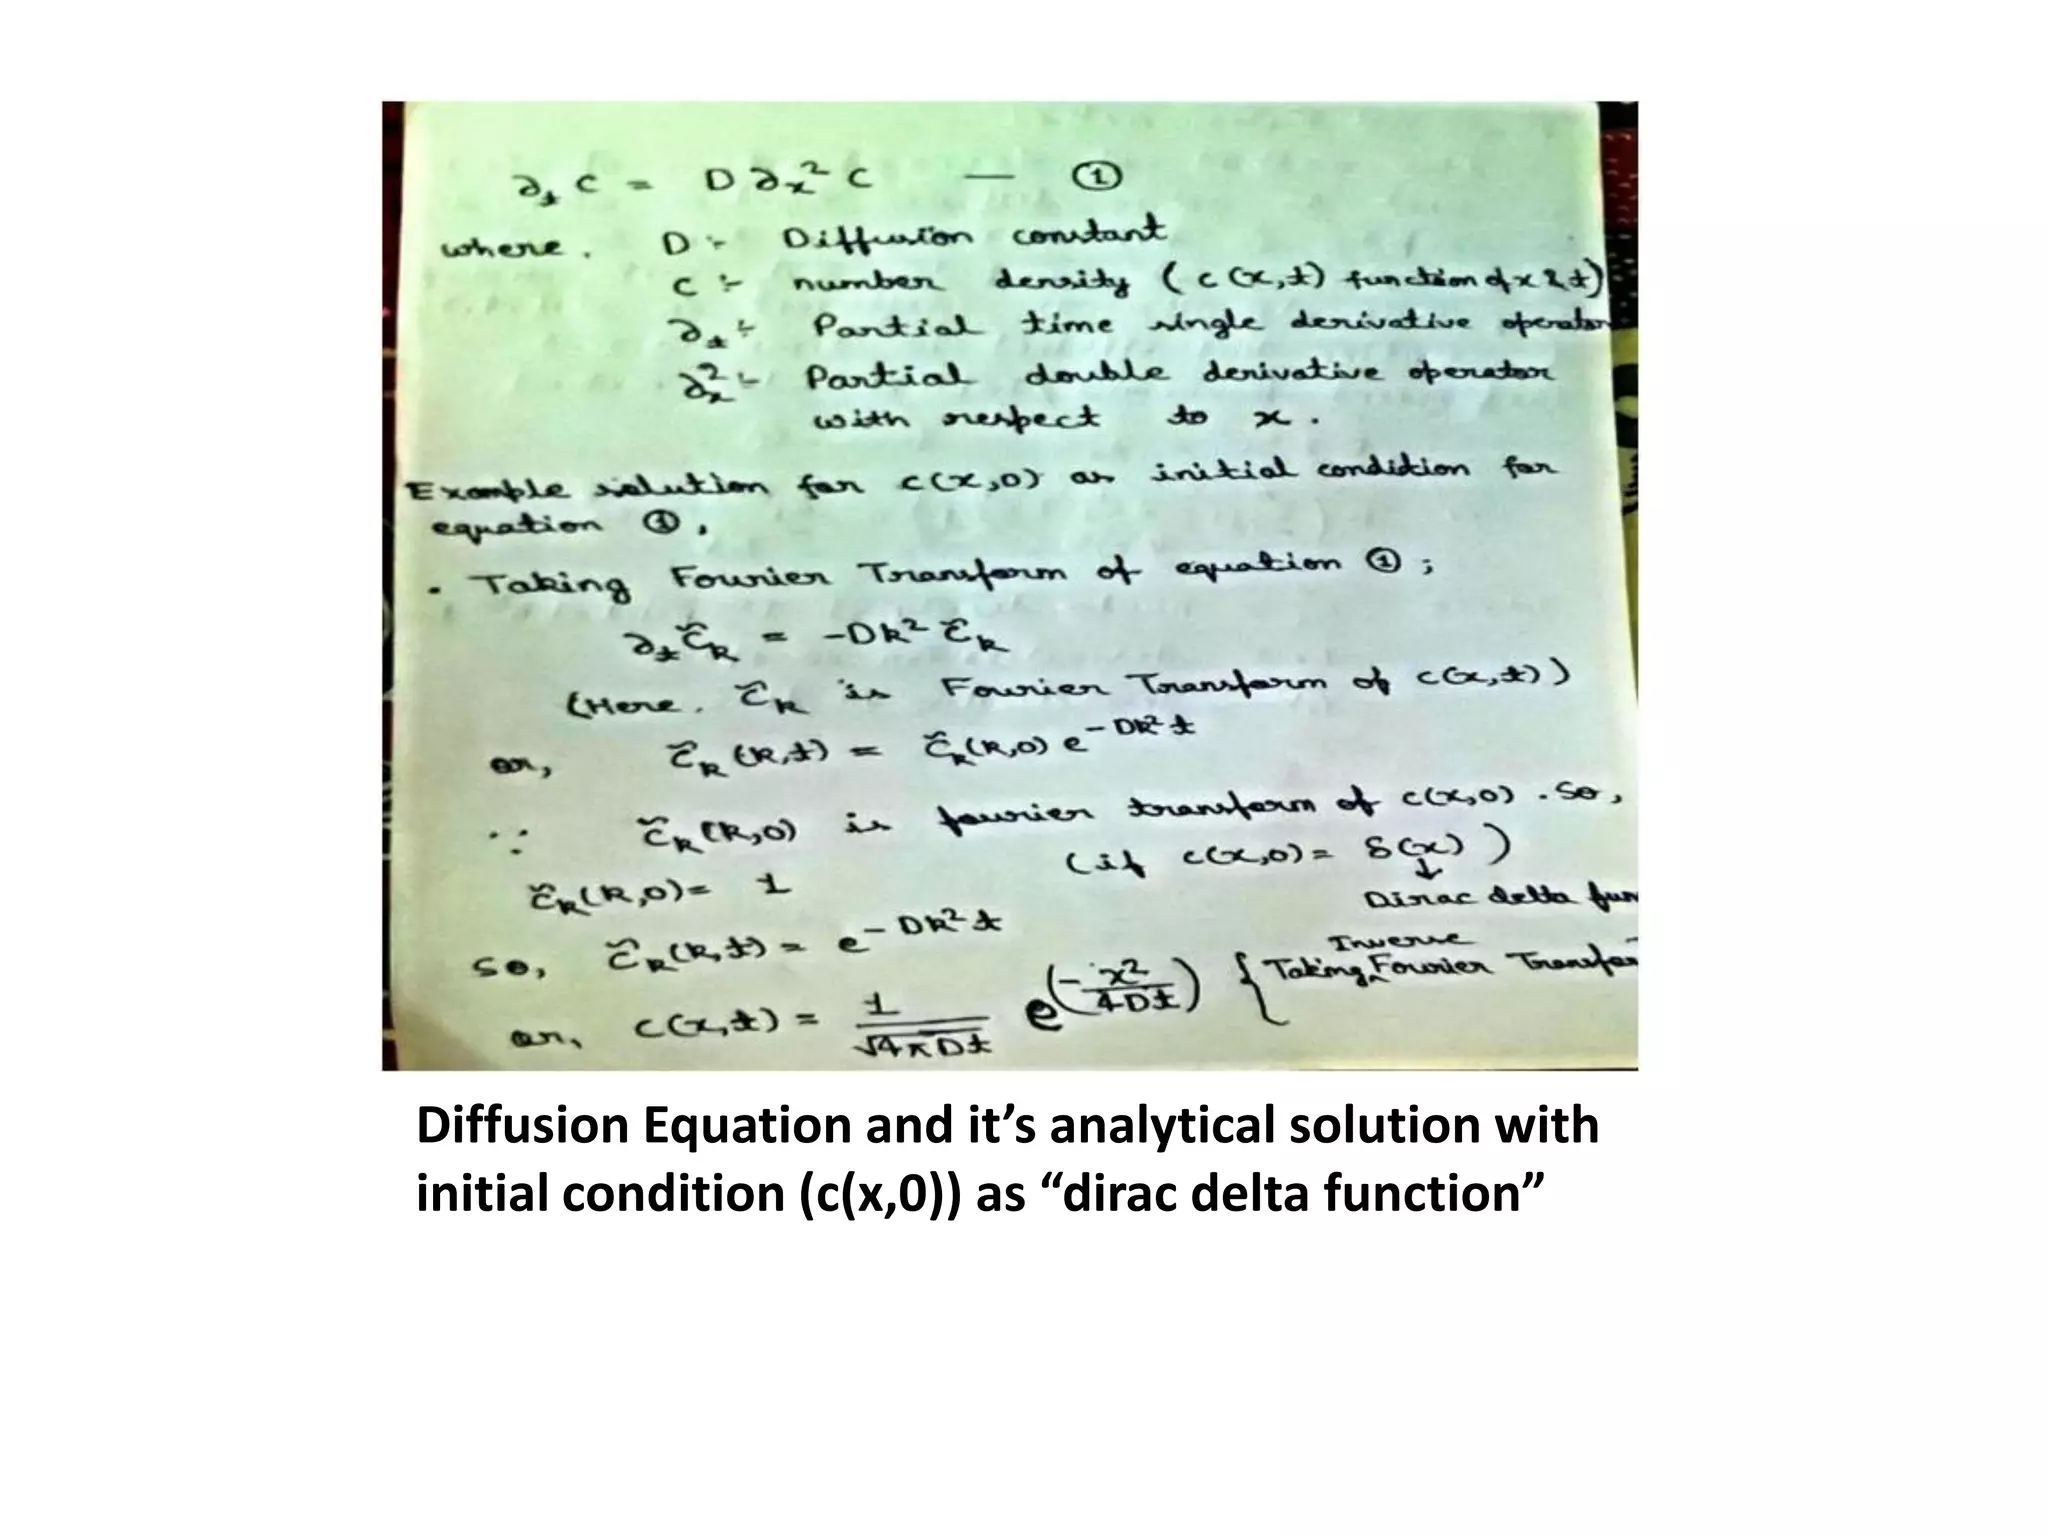 ∂ₜ C = D ∂ₓ² C — ①
where, D :- Diffusion constant
C :- number density ( c (x,t) function of x & t)
∂ₜ :- Partial time single derivative operator
∂ₓ² :- Partial double derivative operator
with respect to x .
Example solution for c(x,0) as initial condition for
equation ①,
• Taking Fourier Transform of equation ① ;
∂ₜ c̃ₖ = -Dk² c̃ₖ
(Here, c̃ₖ is Fourier Transform of c(x,t))
or, c̃ₖ (k,t) = c̃ₖ(k,0) e^{-Dk²t}
∵ c̃ₖ (k,0) is fourier transform of c(x,0) . So,
(if c(x,0) = δ(x) )
↓
c̃ₖ(k,0) = 1 Dirac delta fun
So, c̃ₖ(k,t) = e^{-Dk²t}
or, c(x,t) = 1/√4πDt e^(-x²/4Dt) { Taking Inverse Fourier Transfo
Diffusion Equation and it’s analytical solution with
initial condition (c(x,0)) as “dirac delta function”